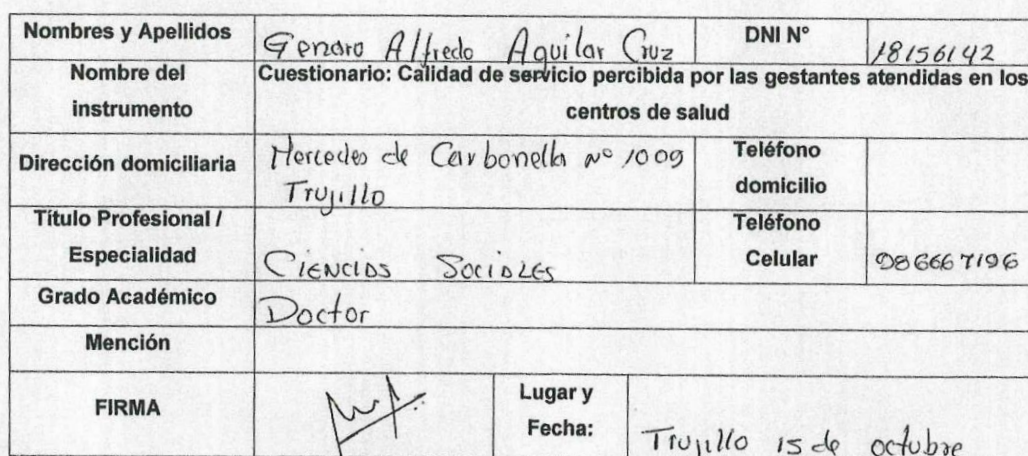 Nombres y Apellidos Genaro Alfredo Aguilar Cruz DNI N° 18156142
Nombre del instrumento Cuestionario: Calidad de servicio percibida por las gestantes atendidas en los
centros de salud
Dirección domiciliaria Mercedes de Carbonella N° 1009
Trujillo
Teléfono
domicilio
Título Profesional /
Especialidad Ciencias Sociales
Teléfono
Celular 986667196
Grado Académico Doctor
Mención
FIRMA
Lugar y
Fecha: Trujillo 15 de octubre